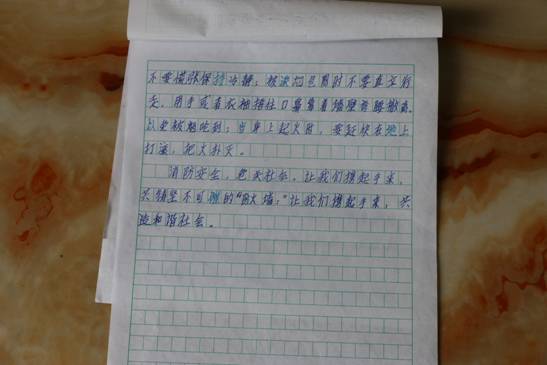 不要慌张保持冷静；被浓烟包围时不要直立行
走，用手或者衣袖捂住口鼻靠着墙壁弯腰撤离，
以免被烟呛到；当身上起火时，要赶快在地上
打滚，把火扑灭。
消防安全，包我社会。让我们携起手来，
共铸坚不可摧的“防火墙；”让我们携起手来，共
造和谐社会。